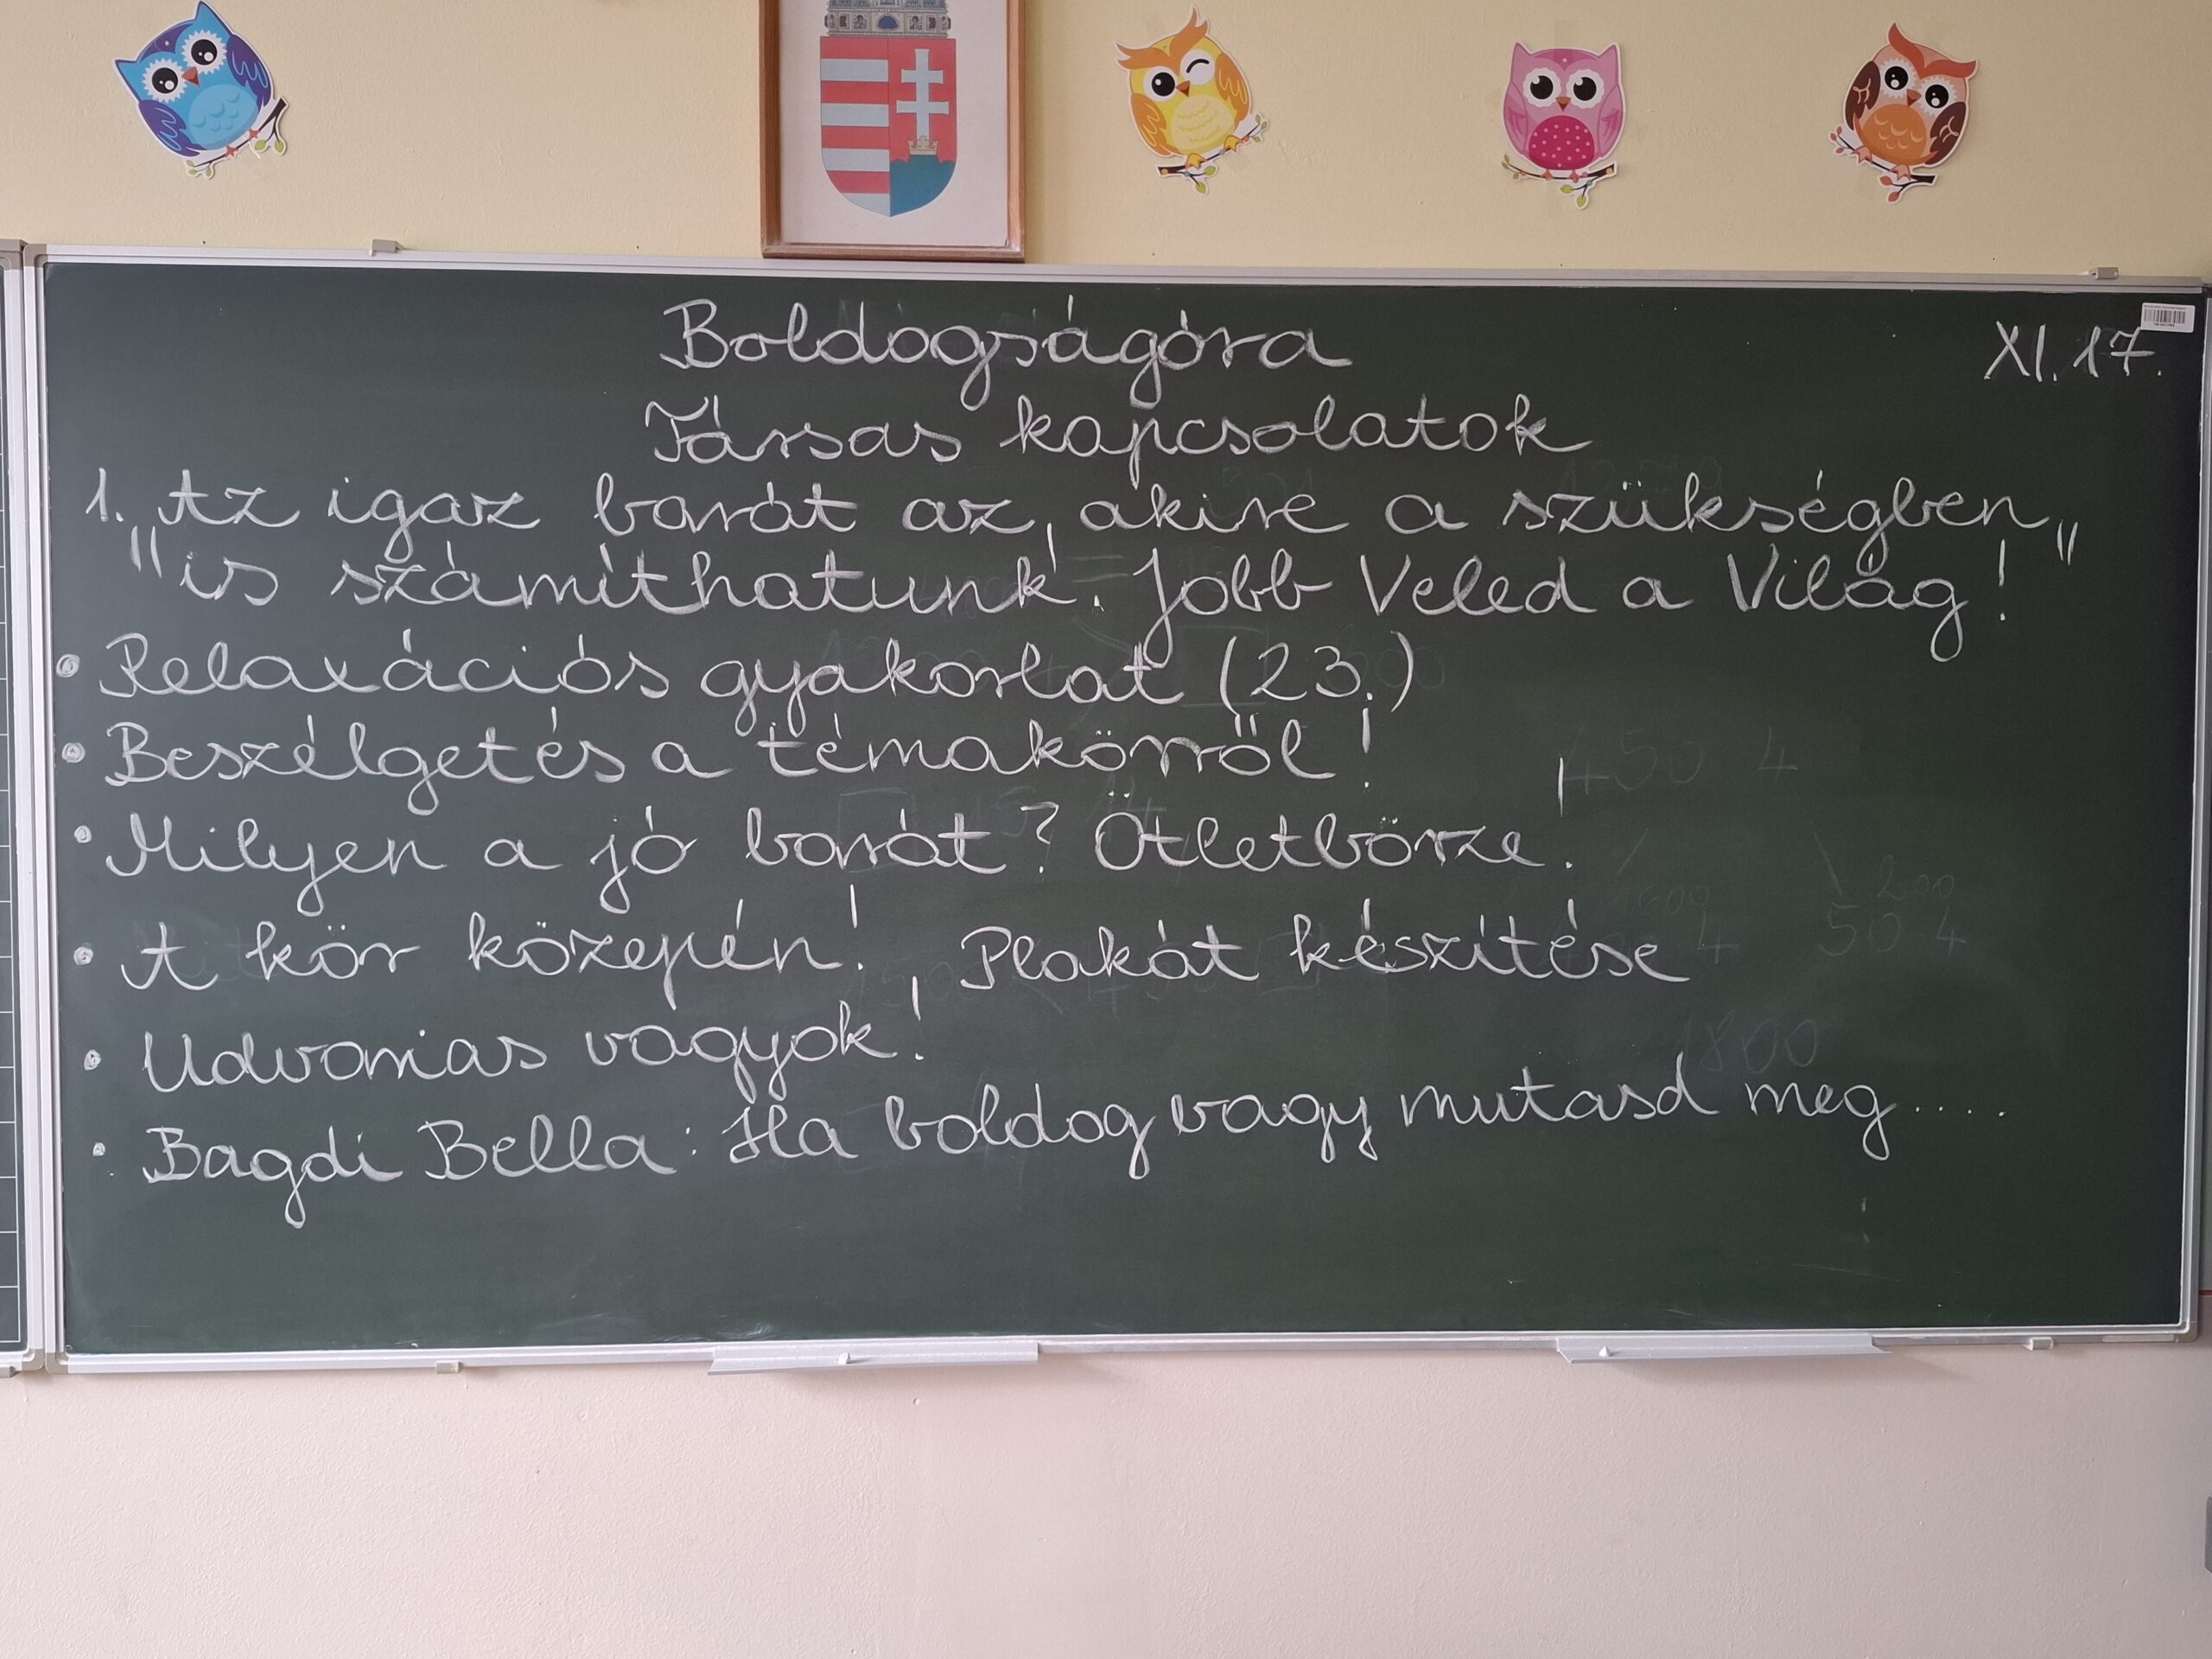 Boldogságóra
XI. 17.
Társas kapcsolatok
1. Az igaz barát az, akire a szükségben
"is számíthatunk! Jobb Veled a Világ!"
• Relaxációs gyakorlat (23.)
• Beszélgetés a témakörről!
• Milyen a jó barát? Ötletbörze!
• A kör közepén! Plakát készítése
• Udvarias vagyok!
• Bagdi Bella: Ha boldog vagy mutasd meg....